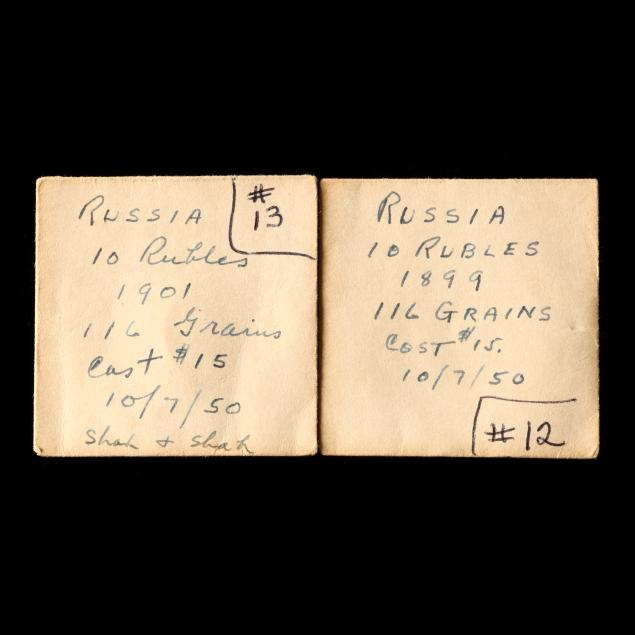 RUSSIA
10 Rubles
1901
116 Grains
Cost $15
10/7/50
Shah & Shah
#
13
RUSSIA
10 RUBLES
1899
116 GRAINS
COST $15.
10/7/50
#12